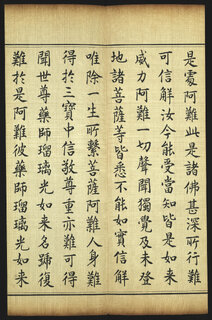 是處阿難此是諸佛甚深所行難
可信解汝今能受當知皆是如來
威力阿難一切聲聞獨覺及未登
地諸菩薩等皆悉不能如實信解
唯除一生所繫菩薩阿難人身難
得於三寶中信敬尊重亦難可得
聞世尊藥師瑠璃光如來名號復
難於是阿難彼藥師瑠璃光如來